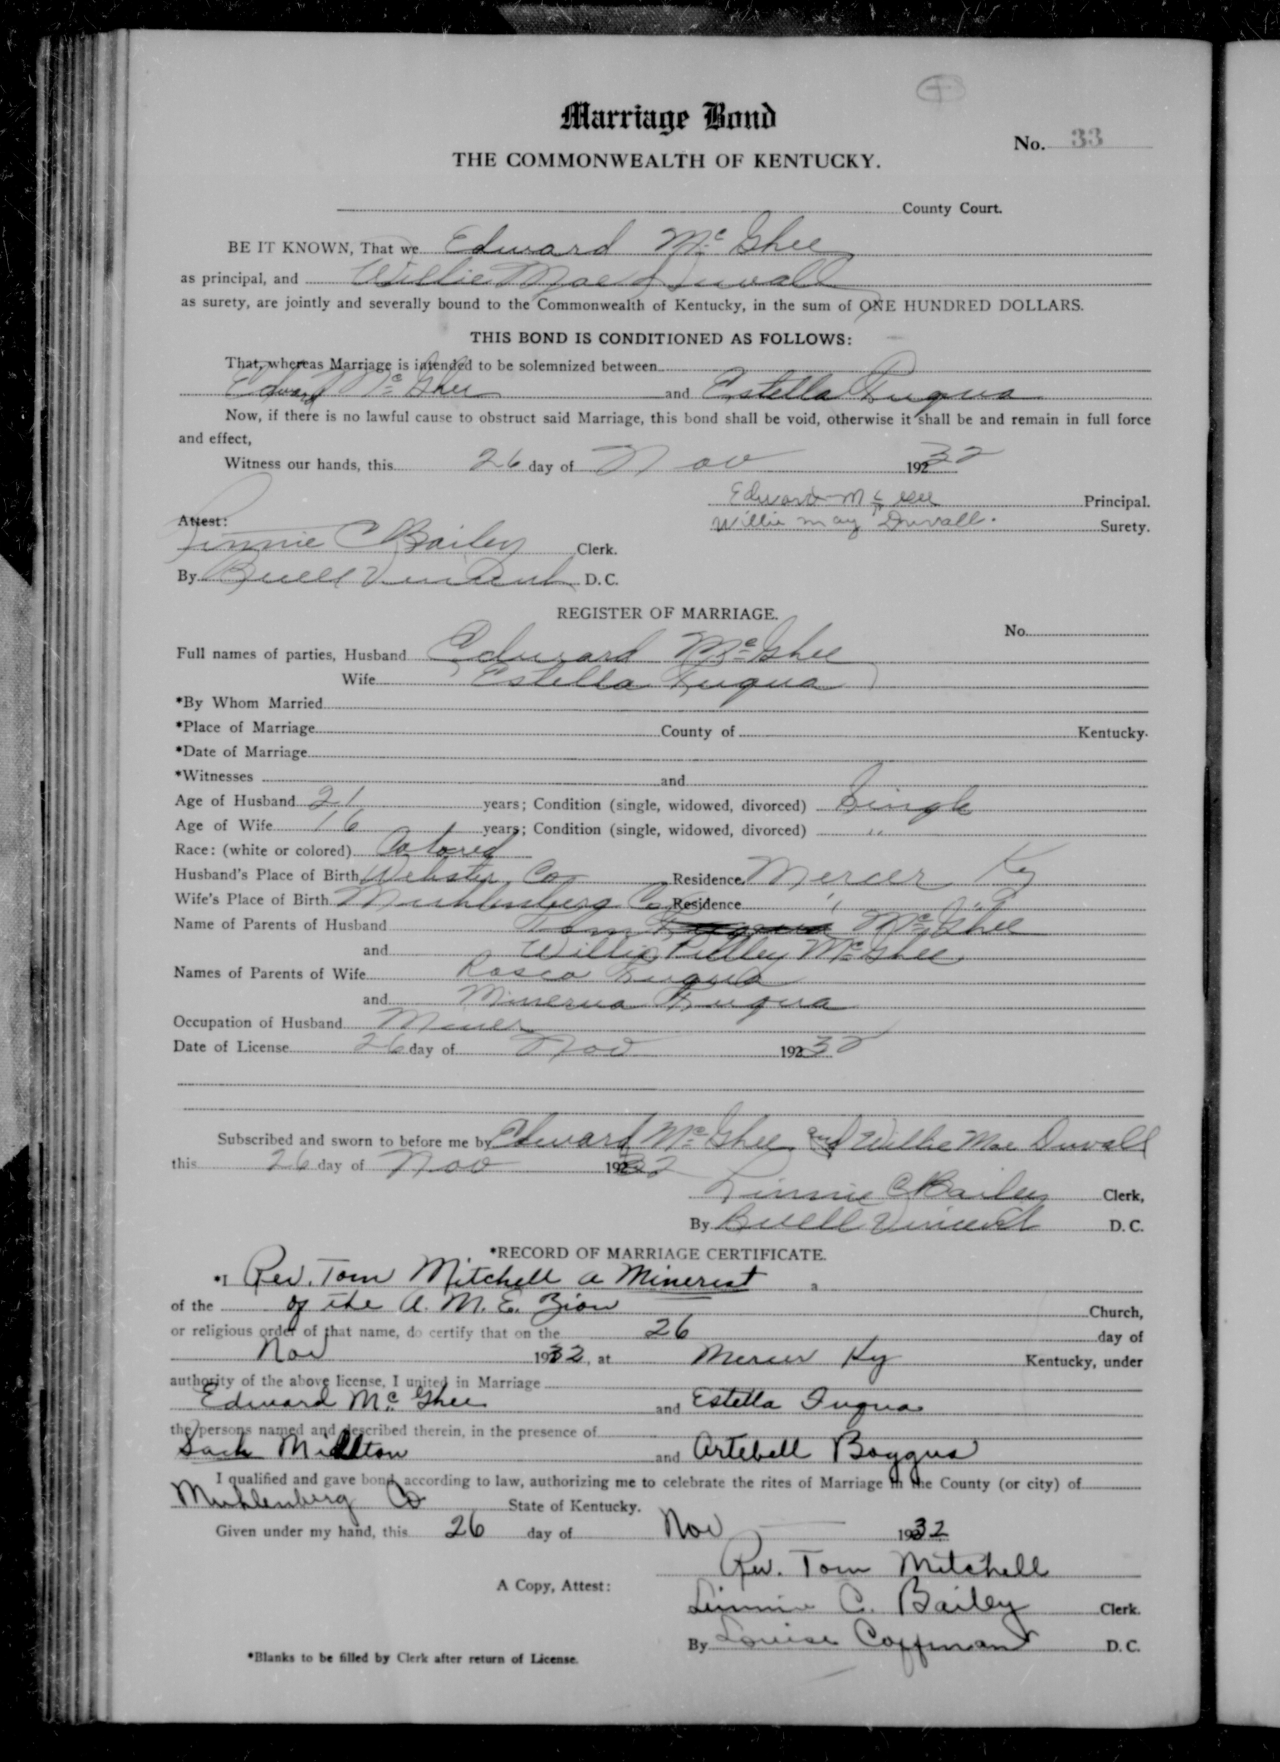 Marriage Bond
No. 33
THE COMMONWEALTH OF KENTUCKY.
County Court.
BE IT KNOWN, That we Edward Mc Ghee
as principal, and Willie Mae Duvall
as surety, are jointly and severally bound to the Commonwealth of Kentucky, in the sum of ONE HUNDRED DOLLARS.
THIS BOND IS CONDITIONED AS FOLLOWS:
That, whereas Marriage is intended to be solemnized between
Edward Mc Ghee and Estella Fuqua
Now, if there is no lawful cause to obstruct said Marriage, this bond shall be void, otherwise it shall be and remain in full force
and effect,
Witness our hands, this 26 day of Nov 19232
Edward Mc Gee Principal.
Attest: Willie may Duvall. Surety.
Linnie C Bailey Clerk.
By Buell Vincent D. C.
REGISTER OF MARRIAGE.
No.
Full names of parties, Husband Edward Mc Ghee
Wife Estella Fuqua
*By Whom Married
*Place of Marriage County of Kentucky.
*Date of Marriage
*Witnesses and
Age of Husband 21 years; Condition (single, widowed, divorced) Single
Age of Wife 16 years; Condition (single, widowed, divorced) "
Race: (white or colored) Colored
Husband's Place of Birth Webster Co Residence Mercer Ky
Wife's Place of Birth Muhlenberg Co Residence " "
Name of Parents of Husband Tom Mc Ghee
and Willie Mc Ghee
Names of Parents of Wife Rosco Fuqua
and Minerva Fuqua
Occupation of Husband Miner
Date of License 26 day of Nov 19232
Subscribed and sworn to before me by Edward Mc Ghee and Willie Mae Duvall
this 26 day of Nov 19232
Linnie C Bailey Clerk,
By Buell Vincent D. C.
*RECORD OF MARRIAGE CERTIFICATE.
*I Rev. Tom Mitchell a Minerist a
of the of the A. M. E. Zion Church,
or religious order of that name, do certify that on the 26 day of
Nov 1932, at Mercer Ky Kentucky, under
authority of the above license, I united in Marriage
Edward Mc Ghee and Estella Fuqua
the persons named and described therein, in the presence of
Sack and Artebell Boggus
I qualified and gave bond, according to law, authorizing me to celebrate the rites of Marriage in the County (or city) of
Muhlenberg Co State of Kentucky.
Given under my hand, this 26 day of Nov 1932
Rev. Tom Mitchell
A Copy, Attest: Linnie C. Bailey Clerk.
By Louise Coffman D. C.
*Blanks to be filled by Clerk after return of License.